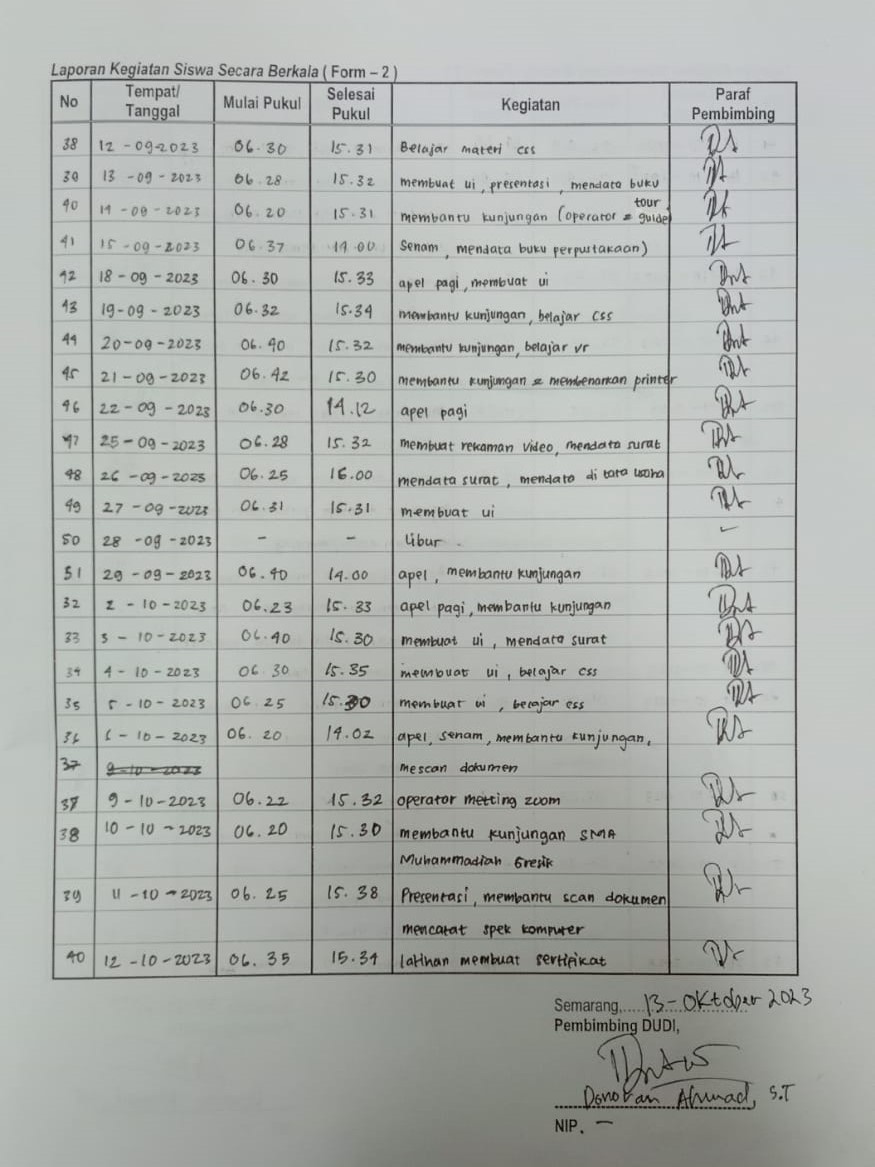 Laporan Kegiatan Siswa Secara Berkala ( Form – 2 )
No Tempat/ Tanggal Mulai Pukul Selesai Pukul Kegiatan Paraf Pembimbing
38 12 - 09-2023 06.30 15.31 Belajar materi css
39 13 - 09 - 2023 06.28 15.32 membuat ui, presentasi, mendata buku
40 14 - 09 - 2023 06.20 15.31 membantu kunjungan (operator & tour guide)
41 15 - 09 - 2023 06.37 14.00 Senam, mendata buku perpustakaan)
42 18 - 09 - 2023 06.30 15.33 apel pagi, membuat ui
43 19-09 - 2023 06.32 15.34 membantu kunjungan, belajar css
44 20-09 - 2023 06.40 15.32 membantu kunjungan, belajar vr
45 21 - 09 - 2023 06.42 15.30 membantu kunjungan & membenarkan printer
46 22 - 09 - 2023 06.30 14.12 apel pagi
47 25 - 09 - 2023 06.28 15.32 membuat rekaman video, mendata surat
48 26 - 09 - 2023 06.25 16.00 mendata surat, mendata di tata usaha
49 27 - 09 - 2023 06.31 15.31 membuat ui
50 28 - 09 - 2023 - - libur -
51 29 - 09 - 2023 06.40 14.00 apel, membantu kunjungan
32 2 - 10 - 2023 06.23 15.33 apel pagi, membantu kunjungan
33 3 - 10 - 2023 06.40 15.30 membuat ui, mendata surat
34 4 - 10 - 2023 06.30 15.35 membuat ui, belajar css
35 5 - 10 - 2023 06.25 15.30 membuat ui, belajar css
36 6 - 10 - 2023 06.20 14.02 apel, senam, membantu kunjungan,
37 9-10-2023 mescan dokumen
37 9 - 10 - 2023 06.22 15.32 operator metting zoom
38 10 - 10 - 2023 06.20 15.30 membantu kunjungan SMA
Muhammadiah Gresik
39 11 - 10 - 2023 06.25 15.38 Presentasi, membantu scan dokumen
mencatat spek komputer
40 12 - 10 - 2023 06.35 15.34 latihan membuat sertifikat
Semarang, 13 - Oktober 2023
Pembimbing DUDI,
Ahmad, S.T
NIP. -